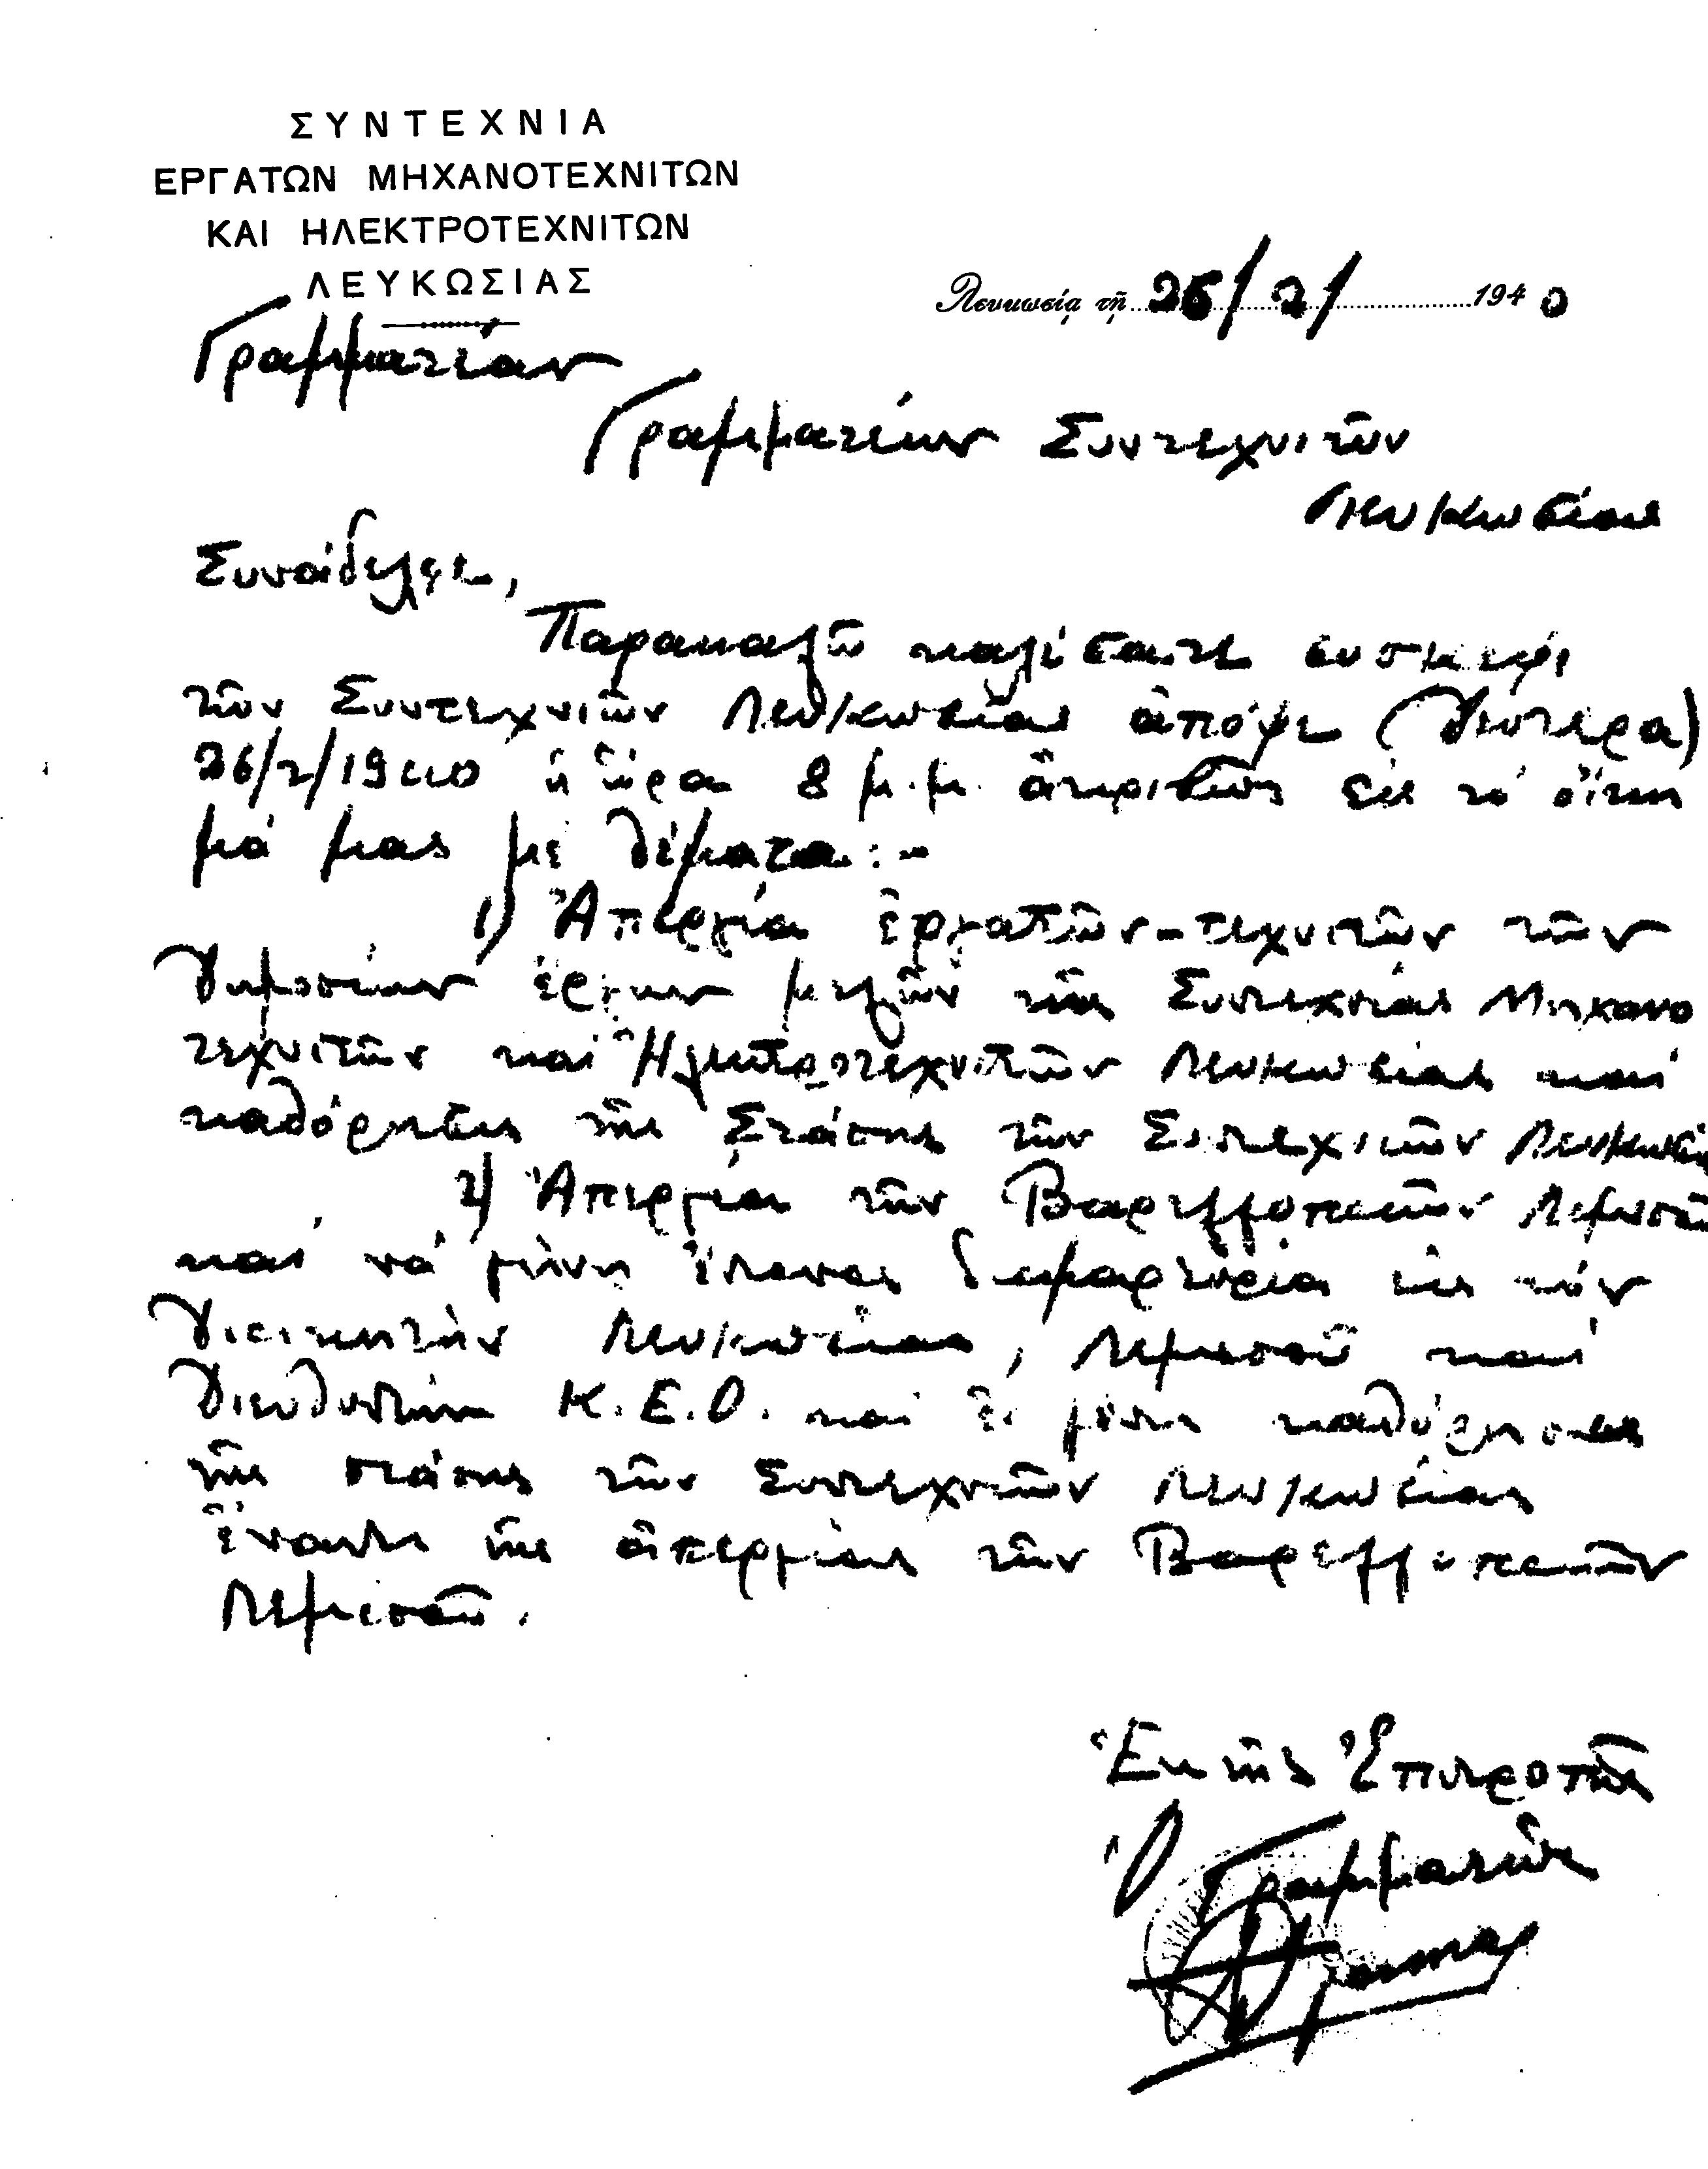 ΣΥΝΤΕΧΝΙΑ
ΕΡΓΑΤΩΝ ΜΗΧΑΝΟΤΕΧΝΙΤΩΝ
ΚΑΙ ΗΛΕΚΤΡΟΤΕΧΝΙΤΩΝ
ΛΕΥΚΩΣΙΑΣ
Λευκωσίᾳ τῇ 26/2/ 1940
Γραμματέαν
Γραμματέων Συντεχνιτῶν
Λευκωσίας
Συνάδελφε,
Παρακαλῶ καλέσατε συσκεψι
τῶν Συντεχνιῶν Λευκωσίας ἀπόψε (Δευτέρα)
26/2/1940 ἡ ὥρα 8 μ.μ. ἀκριβῶς εἰς τό οἴκη
μά μας μέ θέματα:-
1) Ἀπεργία ἐργατῶν-τεχνιτῶν τῶν
Δημοσίων ἔργων μελῶν τῆς Συντεχνίας Μηχανο
τεχνιτῶν καί Ἠλεκτροτεχνιτῶν Λευκωσίας καί
καθόρησις τῆς Στάσης τῶν Συντεχνιῶν
2) Ἀπεργία τῶν Βαρελλοποιῶν Λεμεσοῦ
καί νά γίνη ἔντονος διαμαρτυρία εἰς τόν
Διοικητήν Λευκωσίας, Λεμεσοῦ καί
Διευθυντήν Κ.Ε.Ο. καί γίνη καθόρησις
τῆς στάσης τῶν Συντεχνιῶν Λευκωσίας
ἔναντι τῆς ἀπεργίας τῶν Βαρελλοποιῶν
Λεμεσοῦ.
Ἐκ τῆς Ἐπιτροπῆς
Ὁ Γραμματεύς